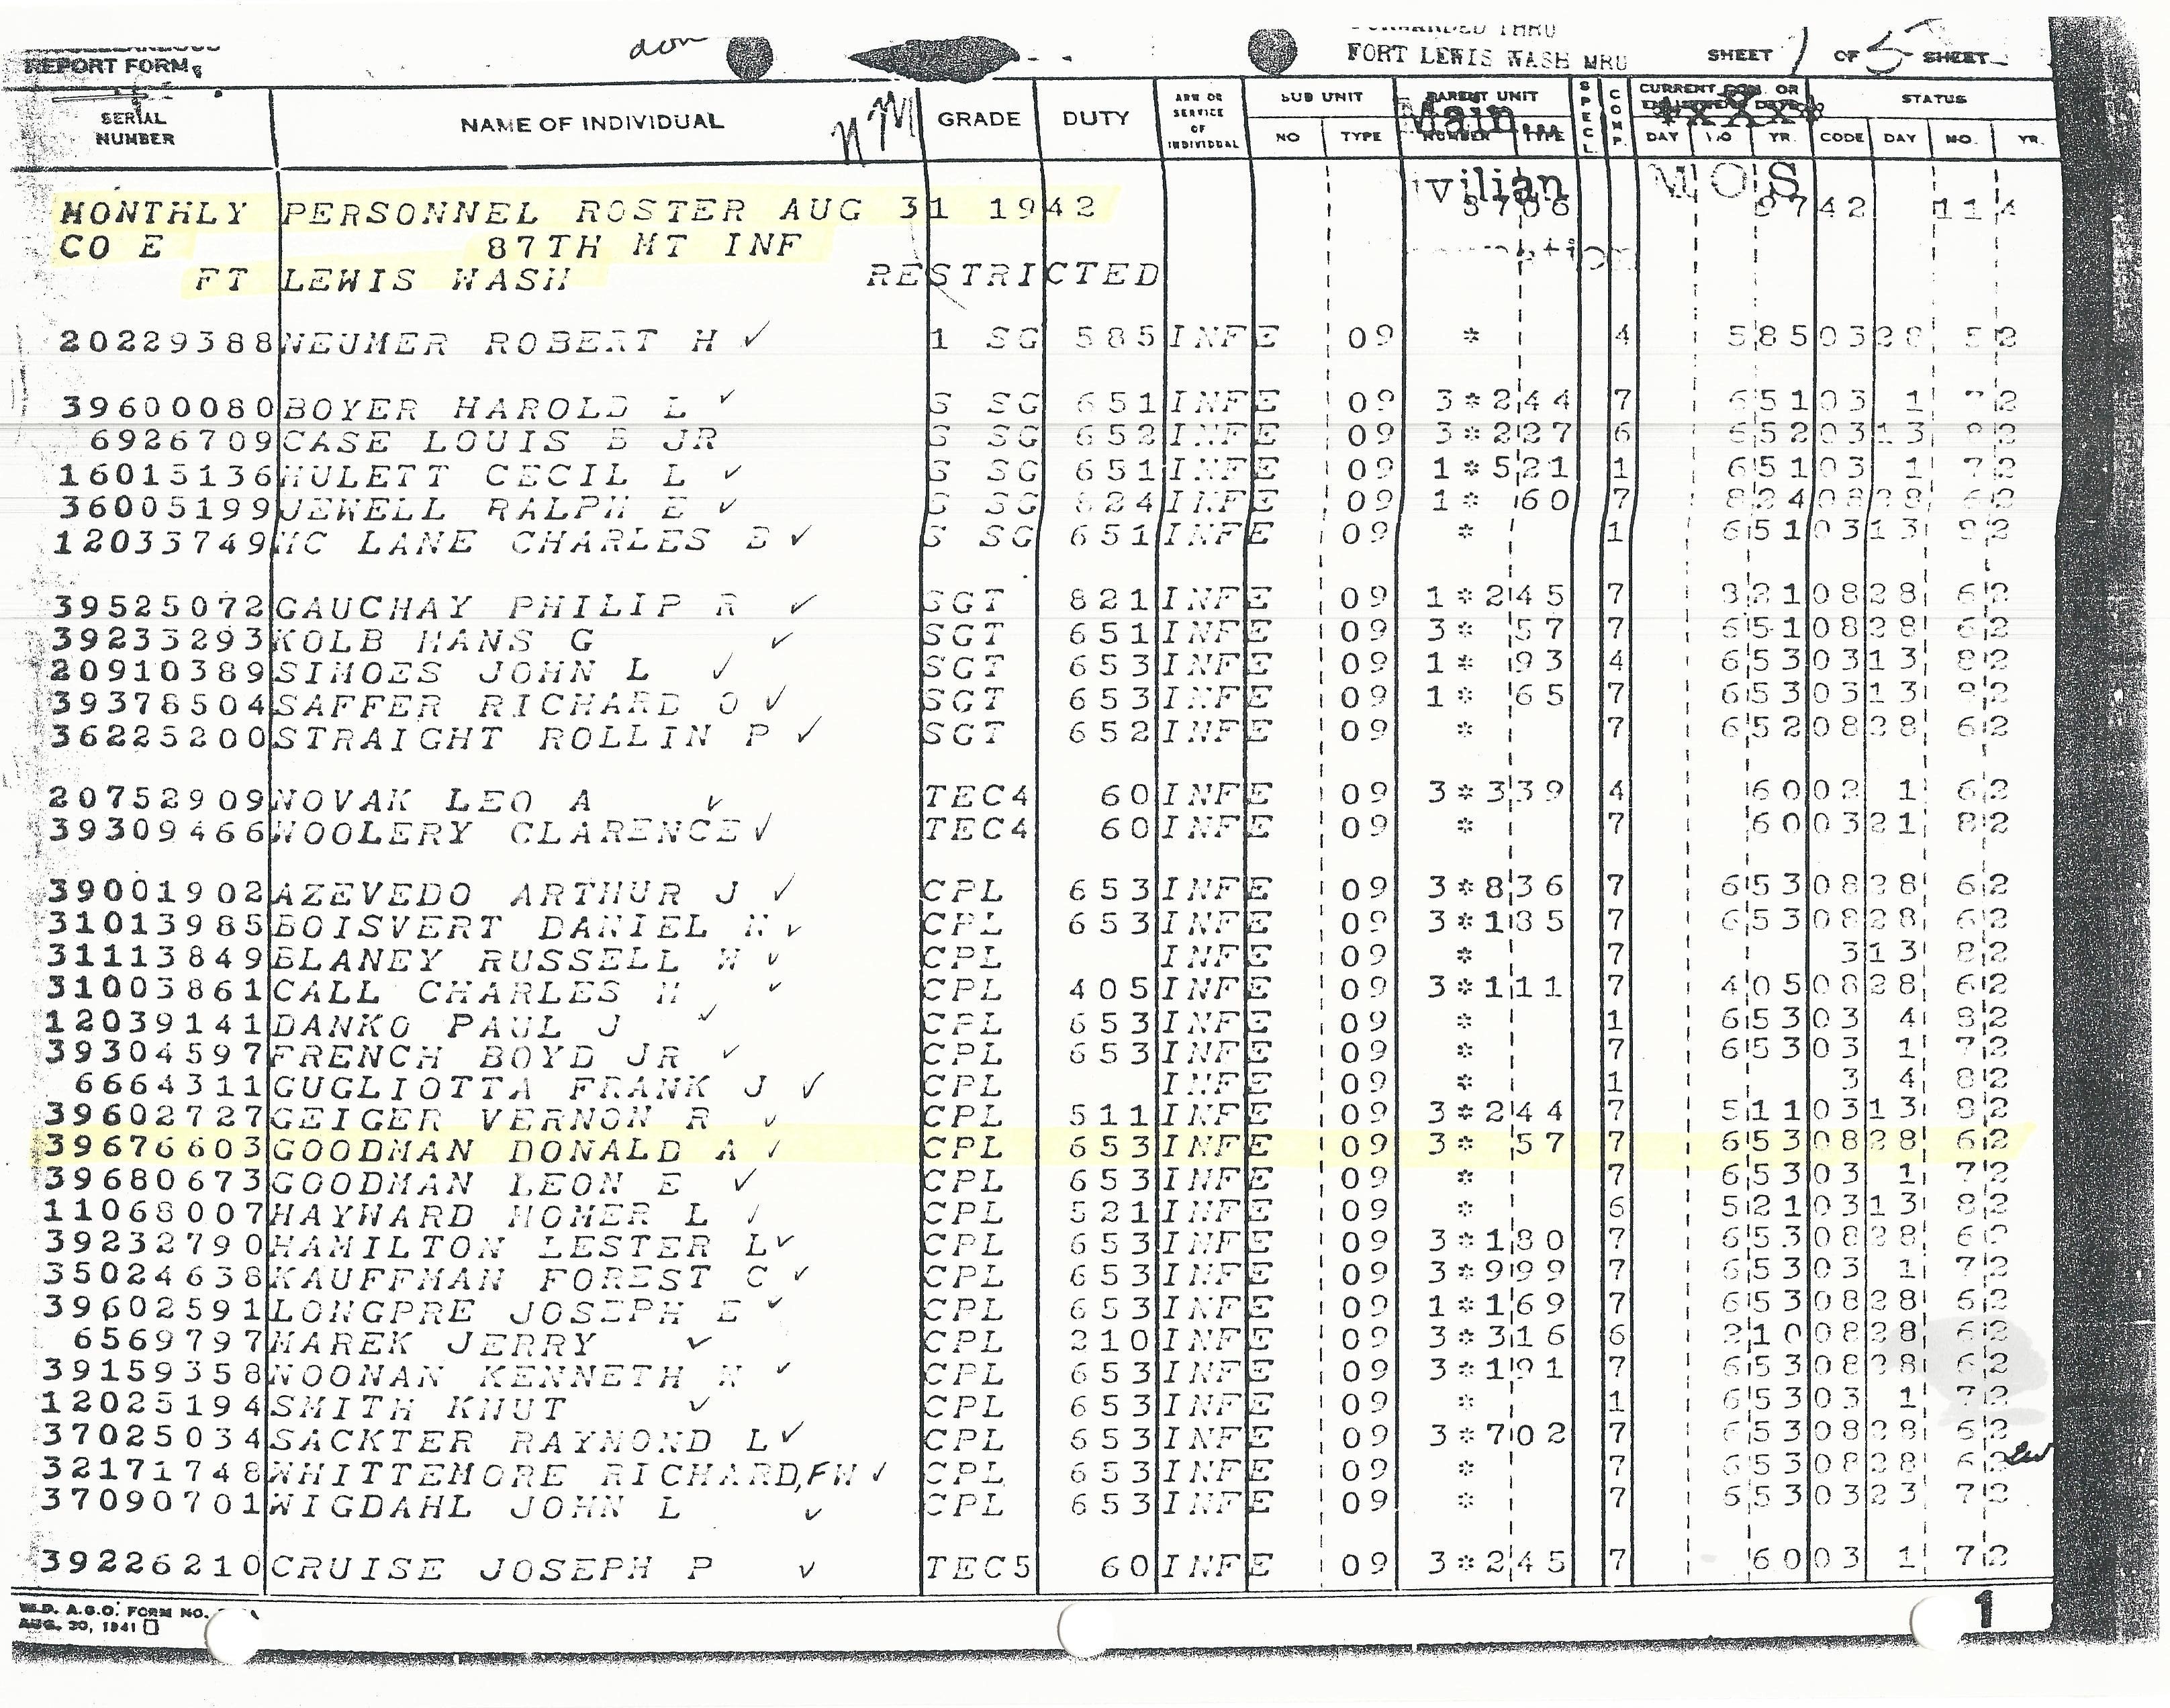 REPORT FORM
don
FORWARDED THRU
FORT LEWIS WASH MRU
SHEET 1 OF 5 SHEETS
SERIAL NUMBER NAME OF INDIVIDUAL GRADE DUTY ARM OR SERVICE OF INDIVIDUAL SUB UNIT NO TYPE PARENT UNIT NUMBER TYPE SPECL COMP. CURRENT OR DAY MO YR. STATUS CODE DAY MO. YR.
Main
MONTHLY PERSONNEL ROSTER AUG 31 1942
CO E 87TH MT INF
FT LEWIS WASH RESTRICTED
ivilian MOS
20229388 NEUMER ROBERT H ✓ 1 SG 585 INF E 09 * 4 585 03 28 5 2
39600080 BOYER HAROLD L ✓ S SG 651 INF E 09 3*244 7 651 03 1 7 2
6926709 CASE LOUIS B JR S SG 652 INF E 09 3*227 6 652 03 13 8 2
16015136 HULETT CECIL L ✓ S SG 651 INF E 09 1*521 1 651 03 1 7 2
36005199 JEWELL RALPH E ✓ S SG 824 INF E 09 1* 60 7 824 08 28 6 2
12033749 MC LANE CHARLES B ✓ S SG 651 INF E 09 * 1 651 03 13 8 2
39525072 GAUCHAY PHILIP R ✓ SGT 821 INF E 09 1*245 7 821 08 28 6 2
39233293 KOLB HANS G ✓ SGT 651 INF E 09 3* 57 7 651 08 28 6 2
20910389 SIMOES JOHN L ✓ SGT 653 INF E 09 1* 93 4 653 03 13 8 2
39378504 SAFFER RICHARD O ✓ SGT 653 INF E 09 1* 65 7 653 03 13 8 2
36225200 STRAIGHT ROLLIN P ✓ SGT 652 INF E 09 * 7 652 08 28 6 2
20752909 NOVAK LEO A ✓ TEC4 60 INF E 09 3*339 4 60 02 1 6 2
39309466 WOOLERY CLARENCE ✓ TEC4 60 INF E 09 * 7 60 03 21 8 2
39001902 AZEVEDO ARTHUR J ✓ CPL 653 INF E 09 3*836 7 653 08 28 6 2
31013985 BOISVERT DANIEL N ✓ CPL 653 INF E 09 3*185 7 653 08 28 6 2
31113849 BLANEY RUSSELL W ✓ CPL INF E 09 * 7 3 13 8 2
31003861 CALL CHARLES H ✓ CPL 405 INF E 09 3*111 7 405 08 28 6 2
12039141 DANKO PAUL J ✓ CPL 653 INF E 09 * 1 653 03 4 8 2
39304597 FRENCH BOYD JR ✓ CPL 653 INF E 09 * 7 653 03 1 7 2
6664311 GUGLIOTTA FRANK J ✓ CPL INF E 09 * 1 3 4 8 2
39602727 GEIGER VERNON R ✓ CPL 511 INF E 09 3*244 7 511 03 13 8 2
39676603 GOODMAN DONALD A ✓ CPL 653 INF E 09 3* 57 7 653 08 28 6 2
39680673 GOODMAN LEON E ✓ CPL 653 INF E 09 * 7 653 03 1 7 2
11068007 HAYWARD HOMER L ✓ CPL 521 INF E 09 * 6 521 03 13 8 2
39232790 HAMILTON LESTER L ✓ CPL 653 INF E 09 3*180 7 653 08 28 6 2
35024638 KAUFFMAN FOREST C ✓ CPL 653 INF E 09 3*999 7 653 03 1 7 2
39602591 LONGPRE JOSEPH E ✓ CPL 653 INF E 09 1*169 7 653 08 28 6 2
6569797 MAREK JERRY ✓ CPL 210 INF E 09 3*316 6 210 08 28 6 2
39159358 NOONAN KENNETH N ✓ CPL 653 INF E 09 3*191 7 653 08 28 6 2
12025194 SMITH KNUT ✓ CPL 653 INF E 09 * 1 653 03 1 7 2
37025034 SACKTER RAYMOND L ✓ CPL 653 INF E 09 3*702 7 653 08 28 6 2
32171748 WHITTEMORE RICHARD,FW ✓ CPL 653 INF E 09 * 7 653 08 28 6 2
37090701 WIGDAHL JOHN L ✓ CPL 653 INF E 09 * 7 653 03 23 7 2
39226210 CRUISE JOSEPH P ✓ TEC5 60 INF E 09 3*245 7 60 03 1 7 2
W.D. A.G.O. FORM NO.
AUG. 30, 1941
1